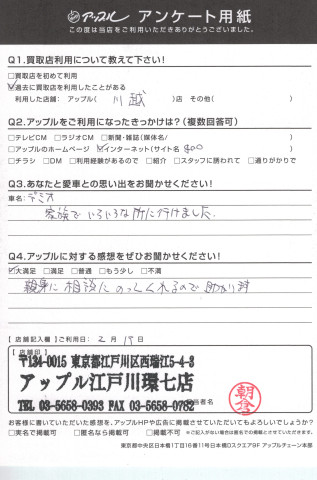 アップル アンケート用紙
この度は当店をご利用いただきありがとうございました。
Q1.買取店利用について教えて下さい!
□買取店を初めて利用
☑過去に買取店を利用したことがある
利用した店舗: アップル( 川越 )店 その他( )
Q2.アップルをご利用になったきっかけは?(複数回答可)
□テレビCM □ラジオCM □新聞・雑誌(媒体名/ )
□アップルのホームページ ☑インターネット(サイト名 )
□チラシ □DM □利用経験があるので □紹介 □スタッフに誘われて □通りがかりで
Q3.あなたと愛車との思い出をお聞かせください!
車名: デミオ
家族でいろいろな所に行けました。
Q4.アップルに対する感想をぜひお聞かせください!
☑大満足 □満足 □普通 □もう少し □不満
親身に相談にのってくれるので助かります
【店舗記入欄】【ご利用日: 2月19日
【店舗印】
〒134-0015 東京都江戸川区西瑞江5-4-3
アップル江戸川環七店
TEL 03-5658-0393 FAX 03-5658-0782
担当者名
朝倉
お客様に書いていただいた感想を、アップルHPや広告に掲載させていただいてもよろしいでしょうか?
□実名で掲載可 □匿名なら掲載可 □掲載不可 ※ご記入がない場合は匿名での掲載とさせていただきます。
東京都中央区日本橋1丁目18番11号日本橋DスクエアF アップルチェーン本部